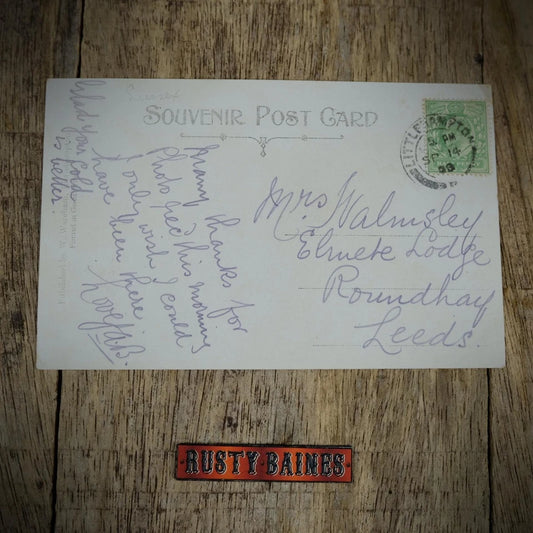 Sussex
SOUVENIR POST CARD
LITTLEHAMPTON
PM
14
Glad your cold
is better.
Many thanks for
Photo rec'd this morning
I only wish I could
have been there
Love
Mrs Walmsley
Elmete Lodge
Roundhay
Leeds.
Published by W.
Printed in
RUSTY·BAINES